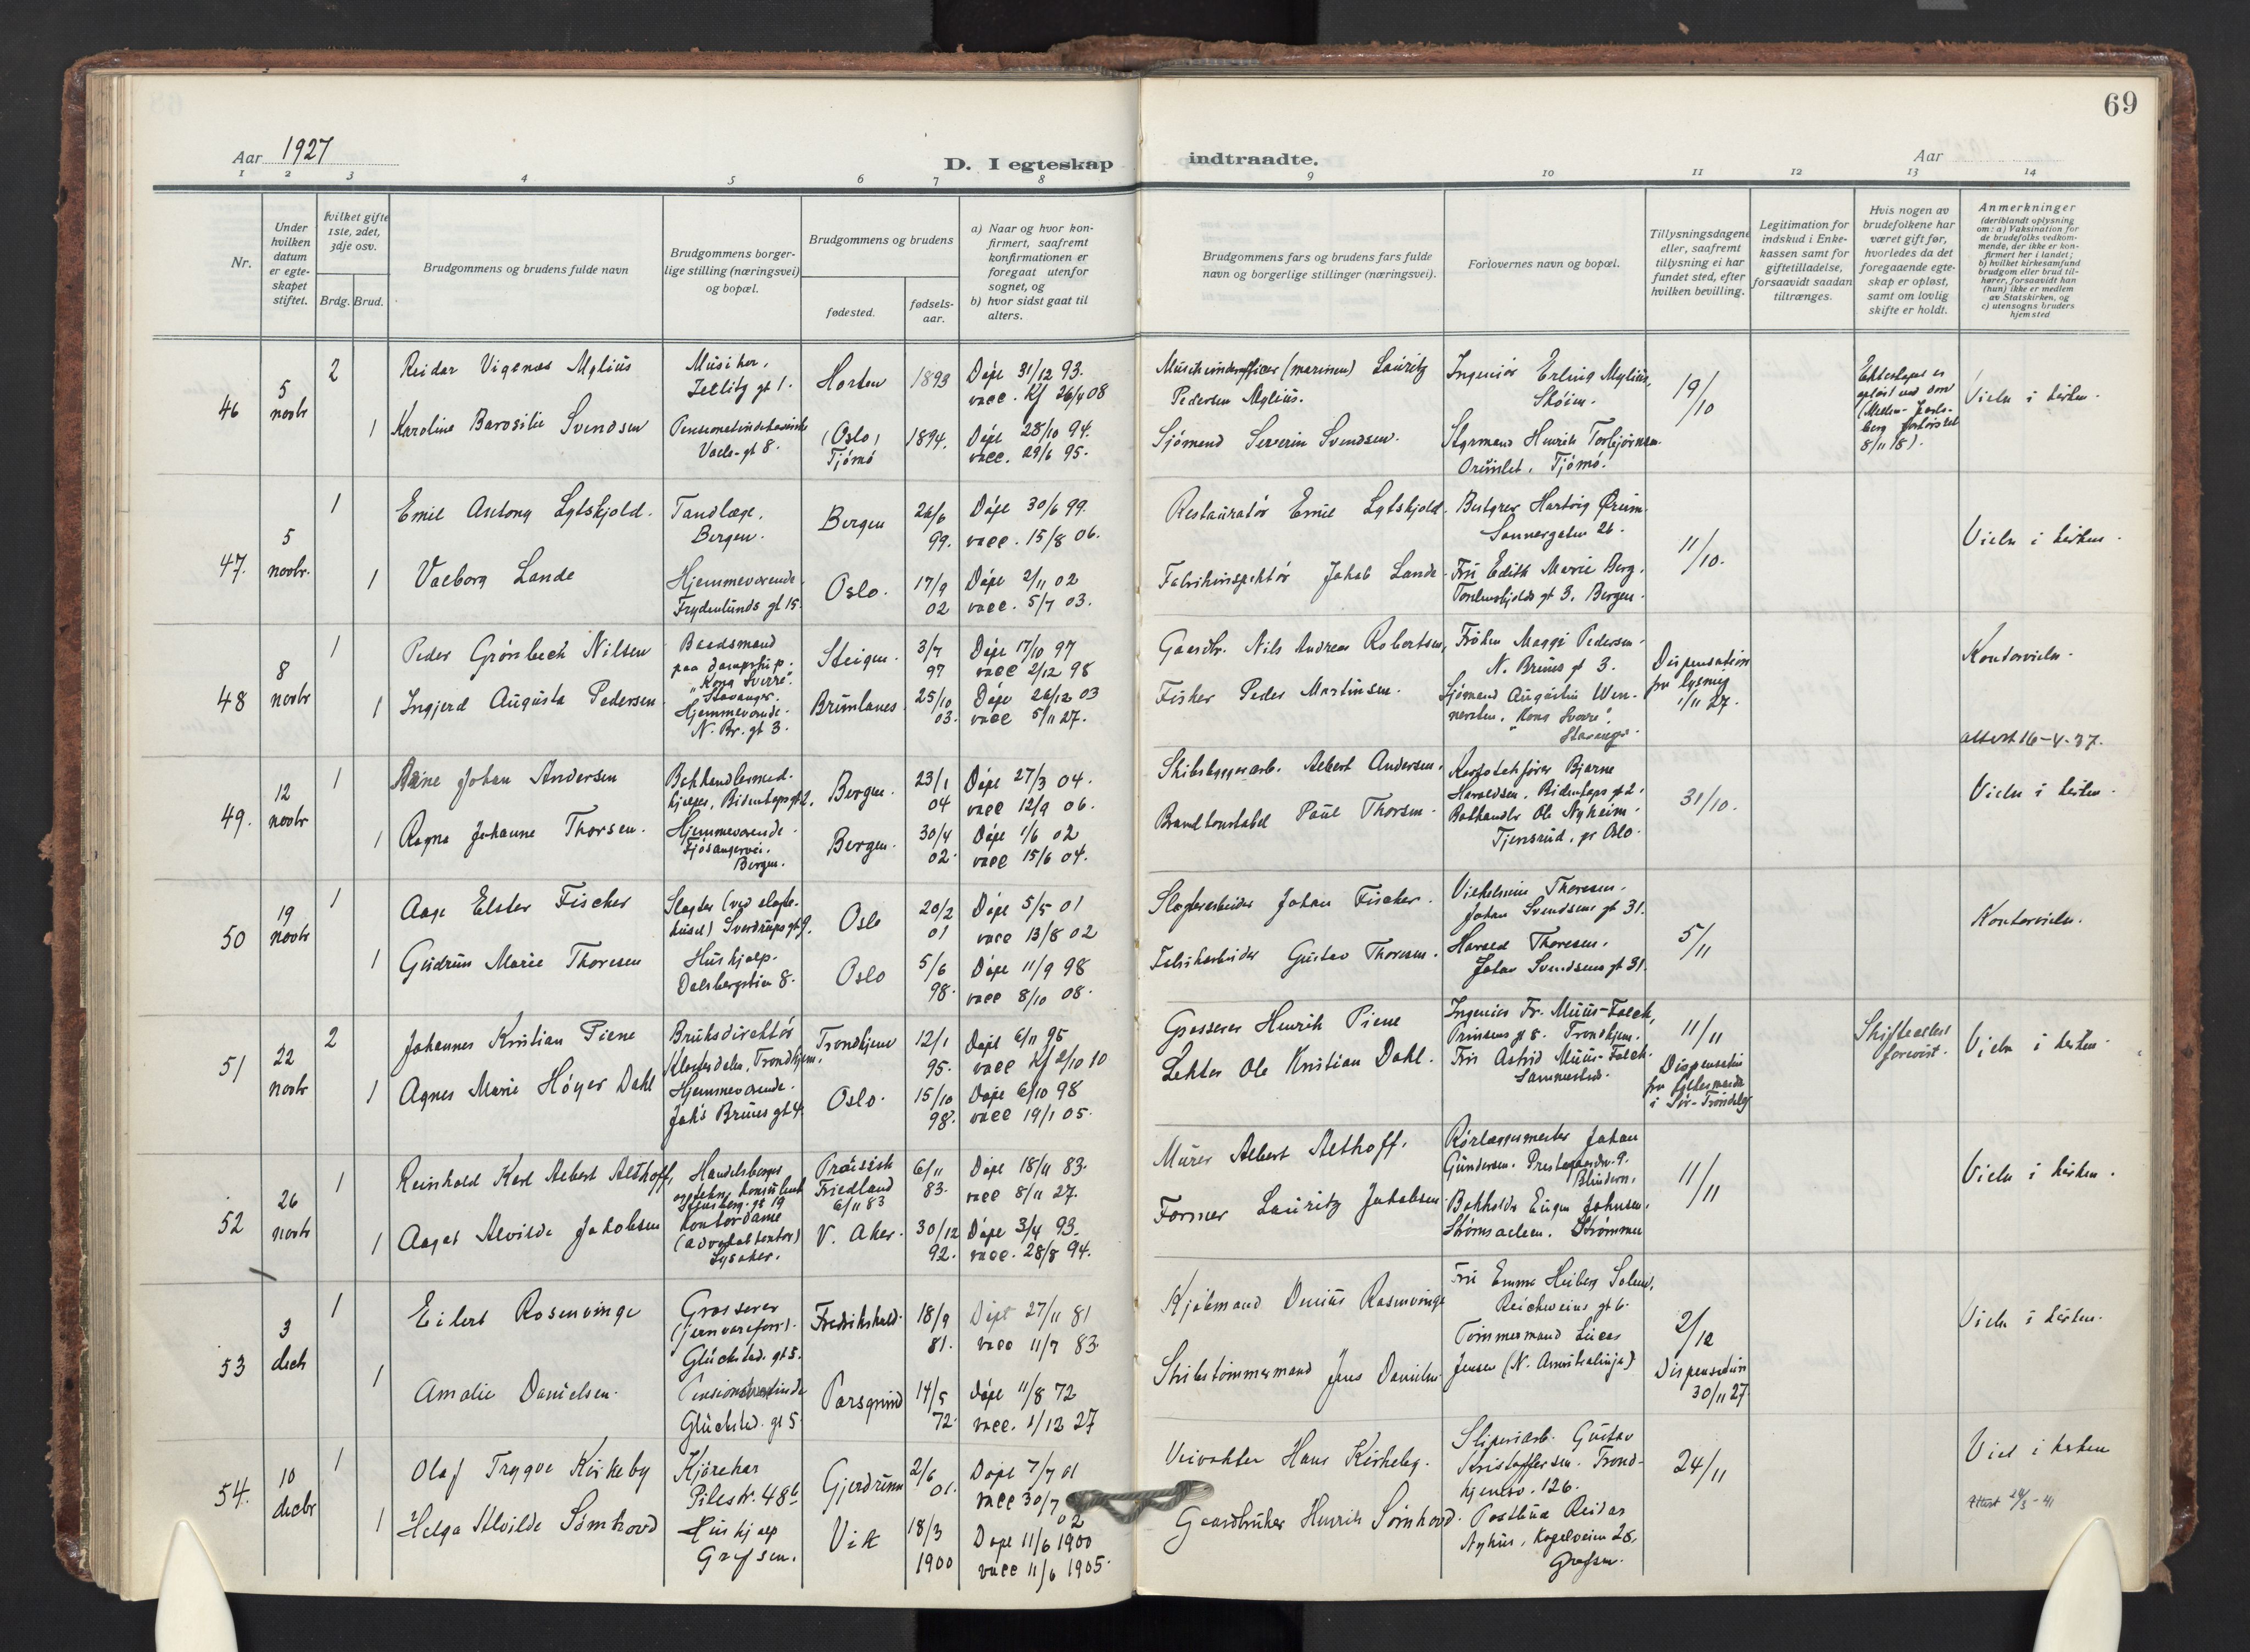 69
Aar 1927
D. I egteskap
indtraadte.
Aar
1 2 3 4 5 6 7 8 9 10 11 12 13 14
Nr.
Under
hvilken
datum
er egte-
skapet
stiftet.
hvilket gifte
1ste, 2det,
3dje osv.
Brdg. Brud.
Brudgommens og brudens fulde navn
Brudgommens borger-
lige stilling (næringsvei)
og bopæl.
Brudgommens og brudens
fødested.
fødsels-
aar.
a) Naar og hvor kon-
firmert, saafremt
konfirmationen er
foregaat utenfor
sognet, og
b) hvor sidst gaat til
alters.
Brudgommens fars og brudens fars fulde
navn og borgerlige stillinger (næringsvei).
Forlovernes navn og bopæl.
Tillysningsdagene
eller, saafremt
tillysning ei har
fundet sted, efter
hvilken bevilling.
Legitimation for
indskud i Enke-
kassen samt for
giftetilladelse,
forsaavidt saadan
tiltrænges.
Hvis nogen av
brudefolkene har
været gift før,
hvorledes da det
foregaaende egte-
skap er opløst,
samt om lovlig
skifte er holdt.
Anmerkninger
(deriblandt oplysning
om: a) Vaksination for
de brudefolks vedkom-
mende, der ikke er kon-
firmert her i landet;
b) hvilket kirkesamfund
brudgom eller brud til-
hører, forsaavidt han
(hun) ikke er medlem
av Statskirken, og
c) utensogns bruders
hjemsted
46
5
novbr
2
Reidar Vigenæs Mylius
Musiker.
Zetlitz gt 1.
Horten
1893
Døpt 31/12 93.
vacc. Kf 26/4 08
Pedersen Mylius.
Ingeniør Erling Mylius,
Skøien.
19/10
8/11 18).
Viede i kirken.
1
Karoline Svendsen
(Oslo)
Tjømø
1894.
Døpt 28/10 94.
vacc. 29/6 95.
Sjömand Severin Svendsen.
Styrmand Henrik Torbjörnsen
Tjömö.
47.
5
novbr.
1
Emil Antony Lytskjold.
Tandlæge.
Bergen.
Bergen
26/6
99.
Døpt 30/6 99.
vacc. 15/8 06.
Restauratör Emil Lytskjold.
Bestyrer Hartvig Ørum
Sannergaten 26.
11/10.
Viede i kirken.
1
Valborg Lande
Hjemmeværende.
Frydenlunds gt 15.
Oslo.
17/9
02
Døpt 2/11 02
vacc. 5/7 03.
Fabrikinspektör Jakob Lande.
Fru Edith Marie Berg.
Tordenskjolds gt 3. Bergen.
48
8
novbr
1
Peder Grönbech Nilsen
Baadsmand
paa dampskip.
"Kong Sverre".
Stavanger.
Steigen.
3/7
97
Døpt 17/10 97
vacc 2/12 98
Gaardbr. Nils Andreas Robertsen,
Fröken Maggi Pedersen.
N. Bruns gt 3.
Dispensation
fra lysning
1/11 27.
Kontorvielse.
1
Ingjerd Augusta Pedersen
Hjemmeværende.
N. Br. gt 3.
25/10
03.
Døpt 26/12 03
vacc 5/11 27.
Fisker Peder Martinsen.
Sjömand Augustin Wen-
"Kong Sverre".
Stavanger.
attest 16-4-37.
49.
12
novbr
1
Arne Johan Andersen
hjelper, Bidenkapsgt 2.
Bergen.
23/1
04
Døpt 27/3 04.
vacc 12/9 06.
Skibsbyggerarb. Albert Andersen.
Kartotekförer Bjarne
Haraldsen. Bidenkaps gt 2.
31/10.
Viede i kirken.
1
Ragna Johanne Thorsen.
Hjemmeværende.
Fjösangervei.
Bergen.
Bergen.
30/4
02.
Døpt 1/6 02
vacc 15/6 04.
Brandkonstabel Paul Thorsen
Bokhandler Ole Nyheim.
Tjensrud, pr Oslo.
50
19
novbr
1
Aage Elster Fischer
Slagter (ved slagte-
huset) Sverdrups gt 9.
Oslo
20/2
01
Døpt 5/5 01
vacc 13/8 02
Slagteriarbeider Johan Fischer.
Vilhelmine Thoresen.
Johan Svendsens gt 31.
5/11
Kontorvielse.
1
Gudrun Marie Thoresen
Hushjælp.
Dalsbergstien 8.
Oslo
5/6
98.
Døpt 11/9 98
vacc 8/10 08.
Fabrikarbeider Gustav Thoresen.
Harald Thoresen.
Johan Svendsens gt 31.
51
22
novbr
2
Johannes Kristian Piene
Bruksdirektör
Klosterdalen, Trondhjem.
Trondhjem
12/1
95.
Døpt 6/11 95
vacc Kf 2/10 10
Grosserer Henrik Piene
Ingeniör Fr. Muus-Falck,
Prinsens gt 8. Trondhjem.
11/11
Skifteattest
forevist.
Viede i kirken.
1
Agnes Marie Höyer Dahl
Hjemmeværende.
Joh's Bruns gt 4.
Oslo.
15/10
98.
Døpt 6/10 98
vacc 19/1 05.
Lektor Ole Kristian Dahl.
Fru Astrid Muus-Falck.
Sammesteds.
Dispensation
fra fylkesmanden
i Sör-Tröndelag
52
26
novbr
1
Reinhold Karl Albert Althoff,
Handelsborger
og tekn. konsulent
gt 19
Friedland
6/11 83
6/11
83.
Døpt 18/11 83.
vacc 8/11 27.
Murer Albert Althoff.
Rörlæggermester Johan
Gundersen. Prestegaardsv. 9.
Blindern.
11/11
Viede i kirken.
1
Aagot Alvilde Jakobsen
Kontordame
(advokatkontor)
Lysaker.
V. Aker.
30/12
92.
Døpt 3/4 93.
vacc. 28/8 94.
Former Lauritz Jakobsen
Bokholder Eugen Johnsen.
Strömmen
53
3
decb
1
Eilert Rosenvinge
Grosserer
(jernvareforr).
Glückstad. gt 5.
Fredrikshald.
18/9
81.
Døpt 27/11 81
vacc 11/7 83.
Kjöbmand Rosenvinge
Fru Emma Heiberg Solem,
Reichweins gt 6.
2/12
Viede i kirken.
1
Amalie Danielsen.
Glückstad. gt 5.
Porsgrund
14/5
72.
Døpt 11/8 72
vacc. 1/12 27
Skibstömmermand Jens Danielsen
Tömmermand Lucas
Jensen (N. Amerikalinje)
Dispensation
30/11 27.
54.
10
decbr
1
Olaf Trygve Kirkeby
Kjörekar
Pilestr. 48b
Gjerdrum
2/6
01.
Døpt 7/7 01
vacc 30/7 02
Veivokter Hans Kirkeby.
Sliperiarb. Gustav
Kristoffersen. Trond-
hjemsv. 126.
24/11
Viet i kirken
1
Helga Alvilde Sömhovd
Hushjælp
Grefsen.
Vik
18/3
1900
Døpt 11/6 1900
vacc 11/6 1905.
Gaardbruker Henrik Sömhovd.
Postbud Reidar
Nyhus, Kapelveien 28,
Grefsen.
Attest 24/3-41